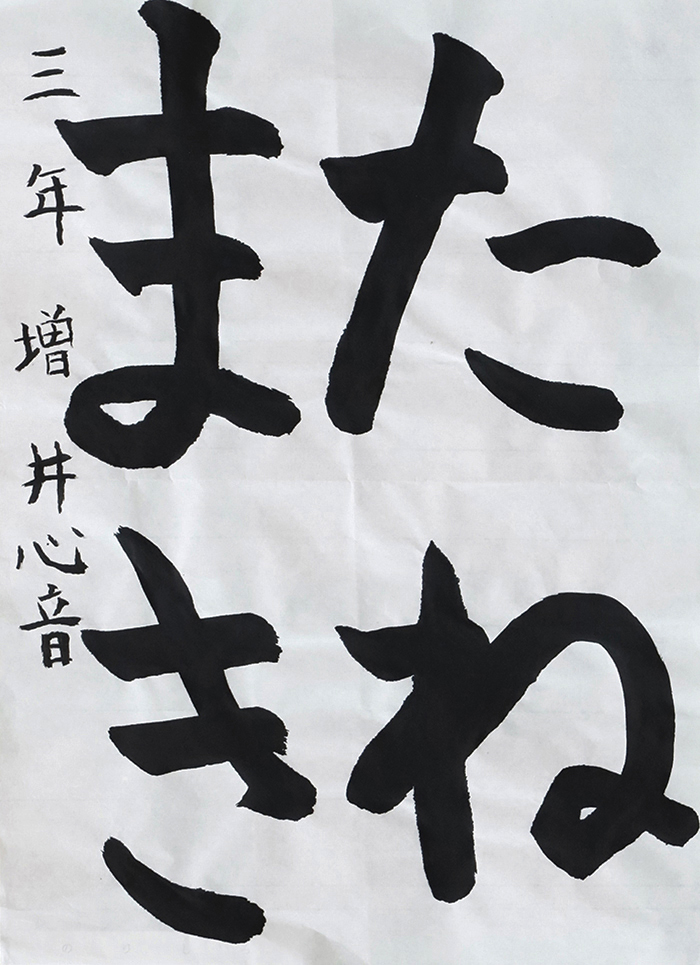 たね
まき
三年 増井心音